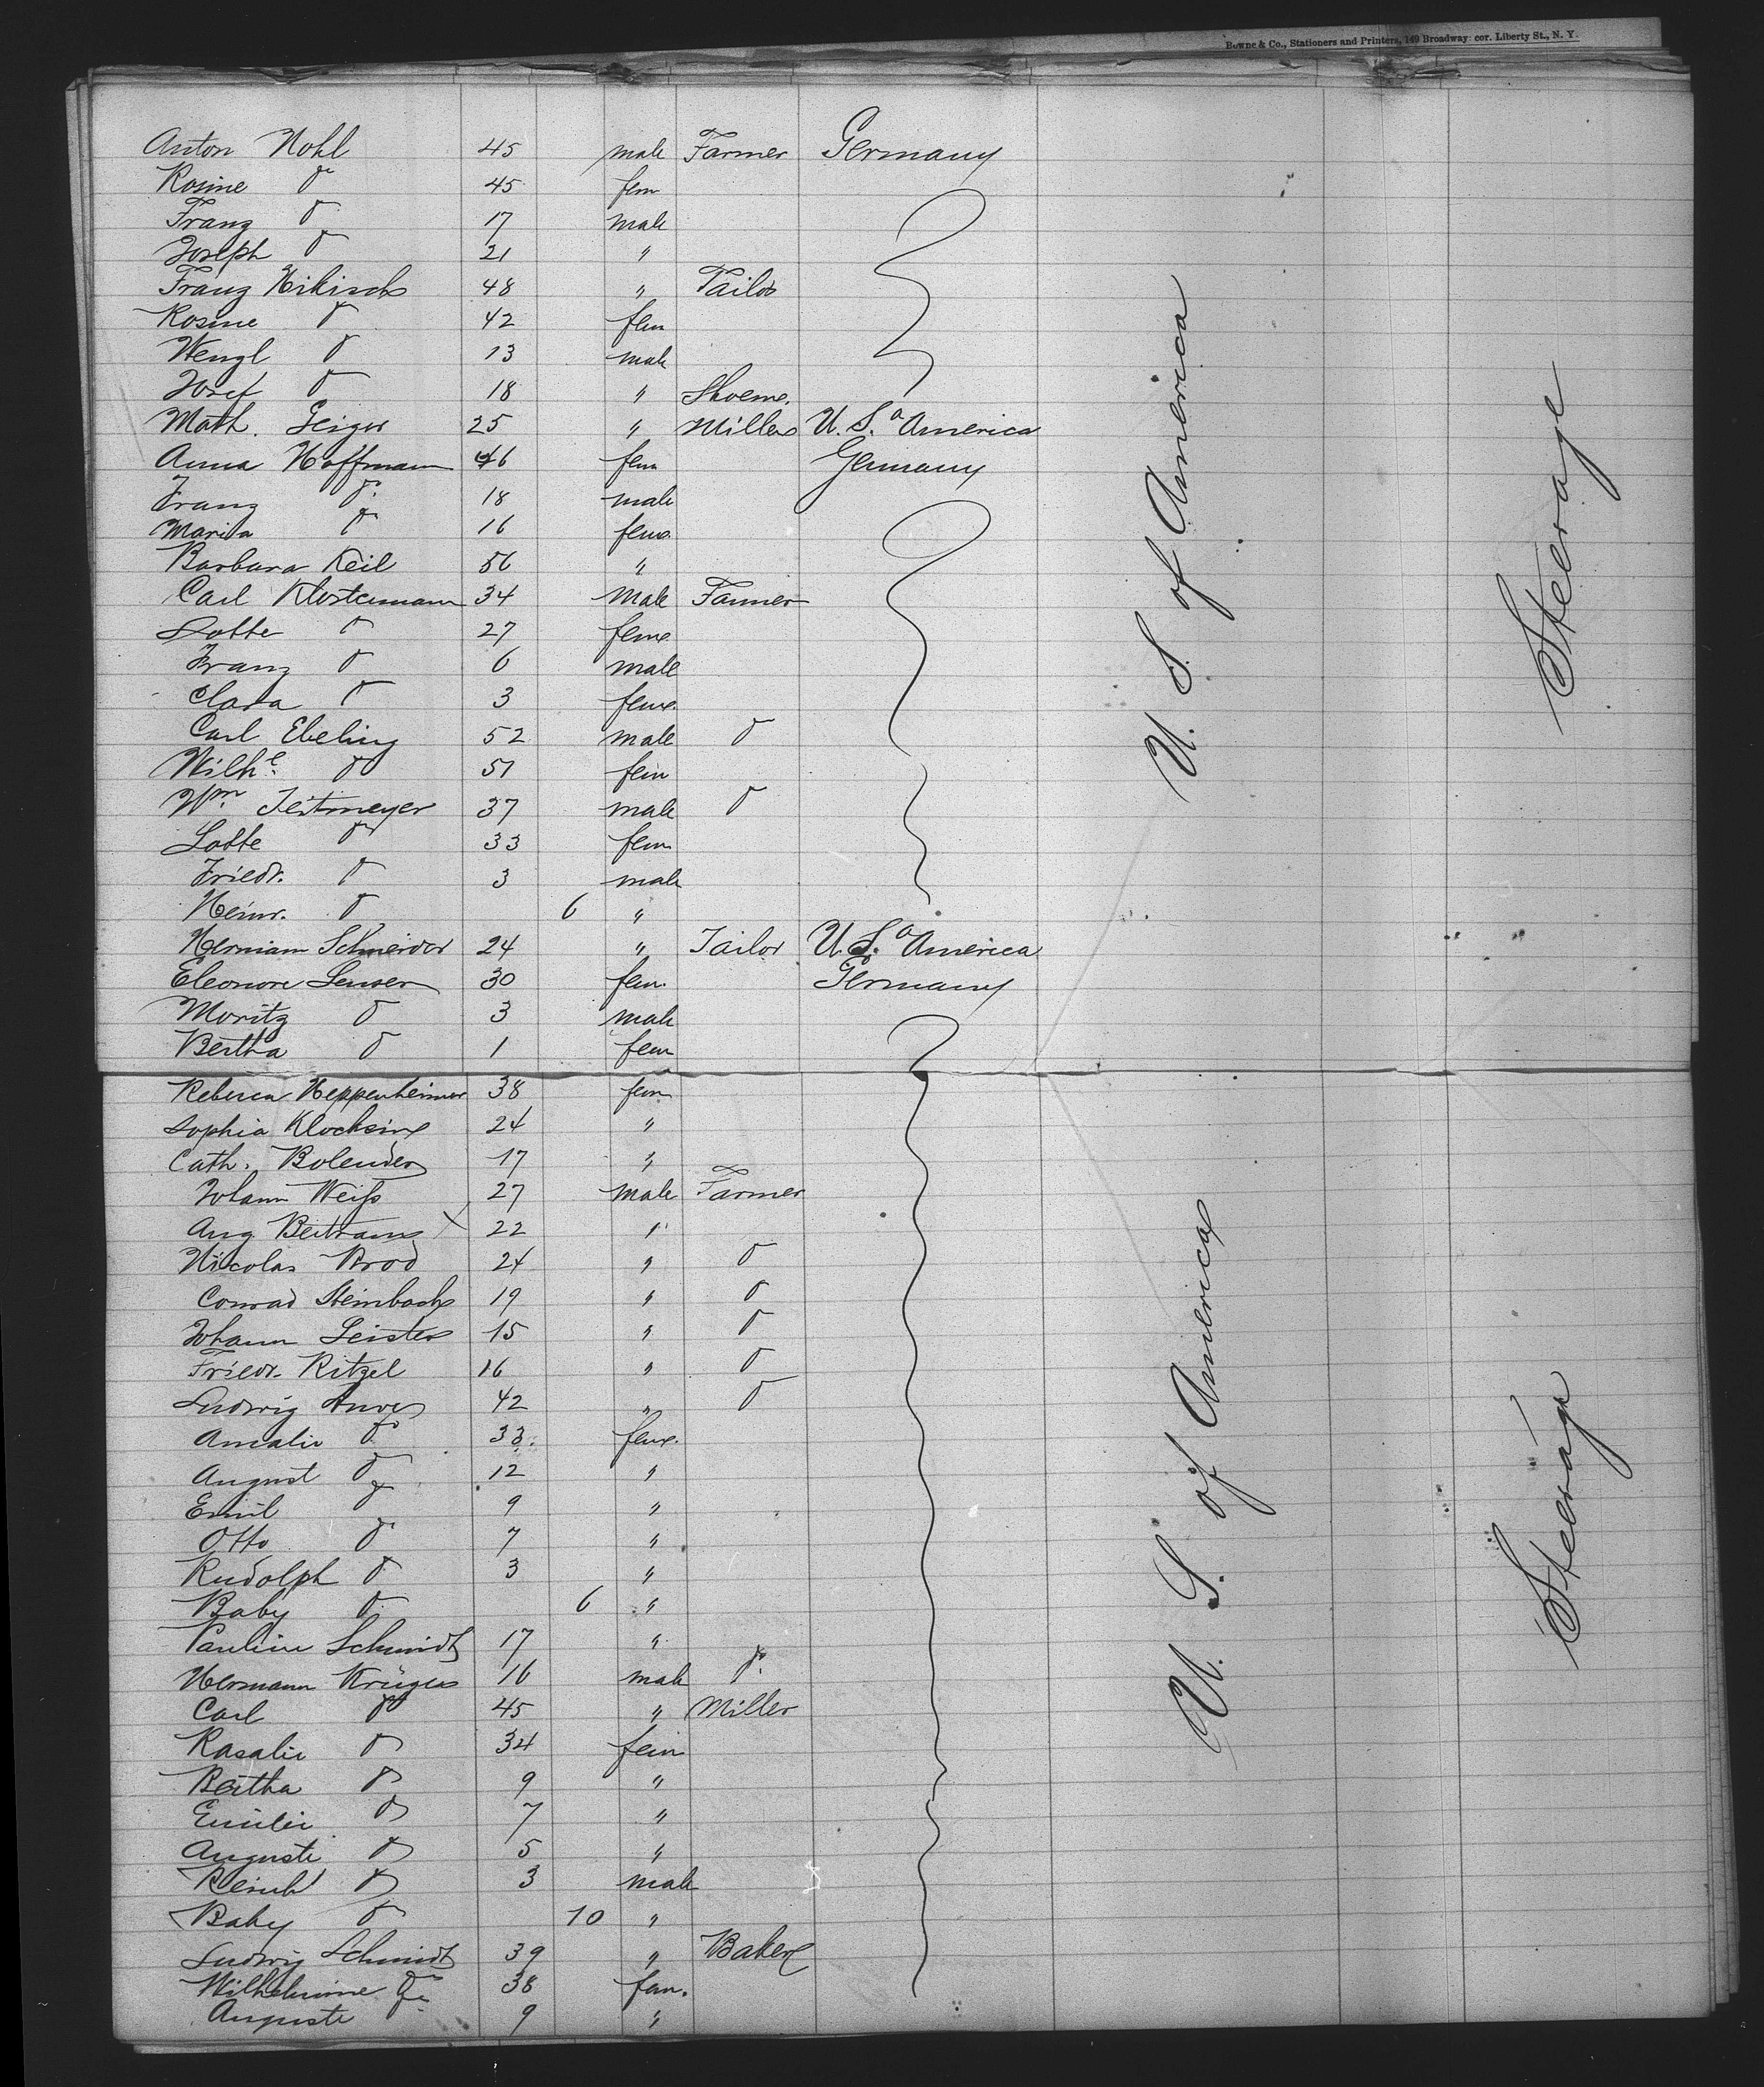 Bowne & Co., Stationers and Printers, 149 Broadway cor. Liberty St., N. Y.
Anton Nohl 45 male Farmer Germany
Rosine do 45 fem
Franz do 17 male
Joseph do 21 "
Franz Nikisch 48 " Tailor
Rosine do 42 fem
Wenzl do 13 male
Josef do 18 " Shoem.
Math. Geiger 25 " Miller U. S. o America
Anna Hoffmann 46 fem Germany
Franz do 18 male
Maria do 16 fem.
Barbara Keil 56 "
Carl Klostermann 34 Male Farmer
Lotte do 27 fem
Franz do 6 male
Clara do 3 fem.
Carl Ebeling 52 male do
Wilhe. do 51 fem
Wm. Teitmeyer 37 male do
Lotte do 33 fem
Friedr. do 3 male
Heinr. do 6 "
Hermann Schneider 24 " Tailor U. S. o America
Eleonore Lenser 30 fem. Germany
Moritz do 3 male
Bertha do 1 fem
U. S. of America
Steerage
Rebecca Heppenheimer 38 fem
Sophia Klocksin 24 "
Cath. Bolender 17 "
Johann Weiß 27 male Farmer
Aug. Bertram 22 "
Nicolas Brod 24 " do
Conrad Steinbach 19 " do
Johann Leister 15 " do
Friedr. Ritzel 16 " do
Ludwig 42 " do
Amalie do 33. fem.
August do 12 "
Emil do 9 "
Otto do 7 "
Rudolph do 3 "
Baby do 6 "
Pauline Schmidt 17 "
Hermann Krüger 16 male do
Carl do 45 " Miller
Rasalie do 34 fem
Bertha do 9 "
Emilie do 7 "
Auguste do 5 "
Reinh do 3 male
Baby do 10 "
Ludwig Schmidt 39 " Baker
Wilhelmine do 38 fem.
Auguste 9 "
U. S. of America
Steerage